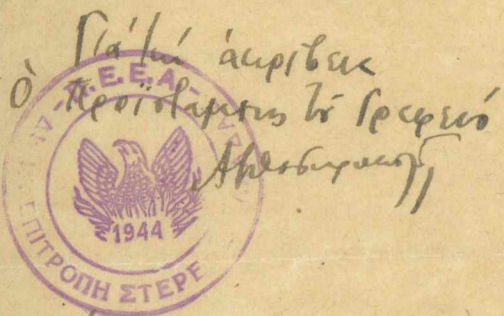 Γιά τήν ἀκρίβεια
Ὁ Προϊστάμενος τοῦ Γραφείου
Π.Ε.Ε.Α.
ΕΠΙΤΡΟΠΗ ΣΤΕΡΕ
1944